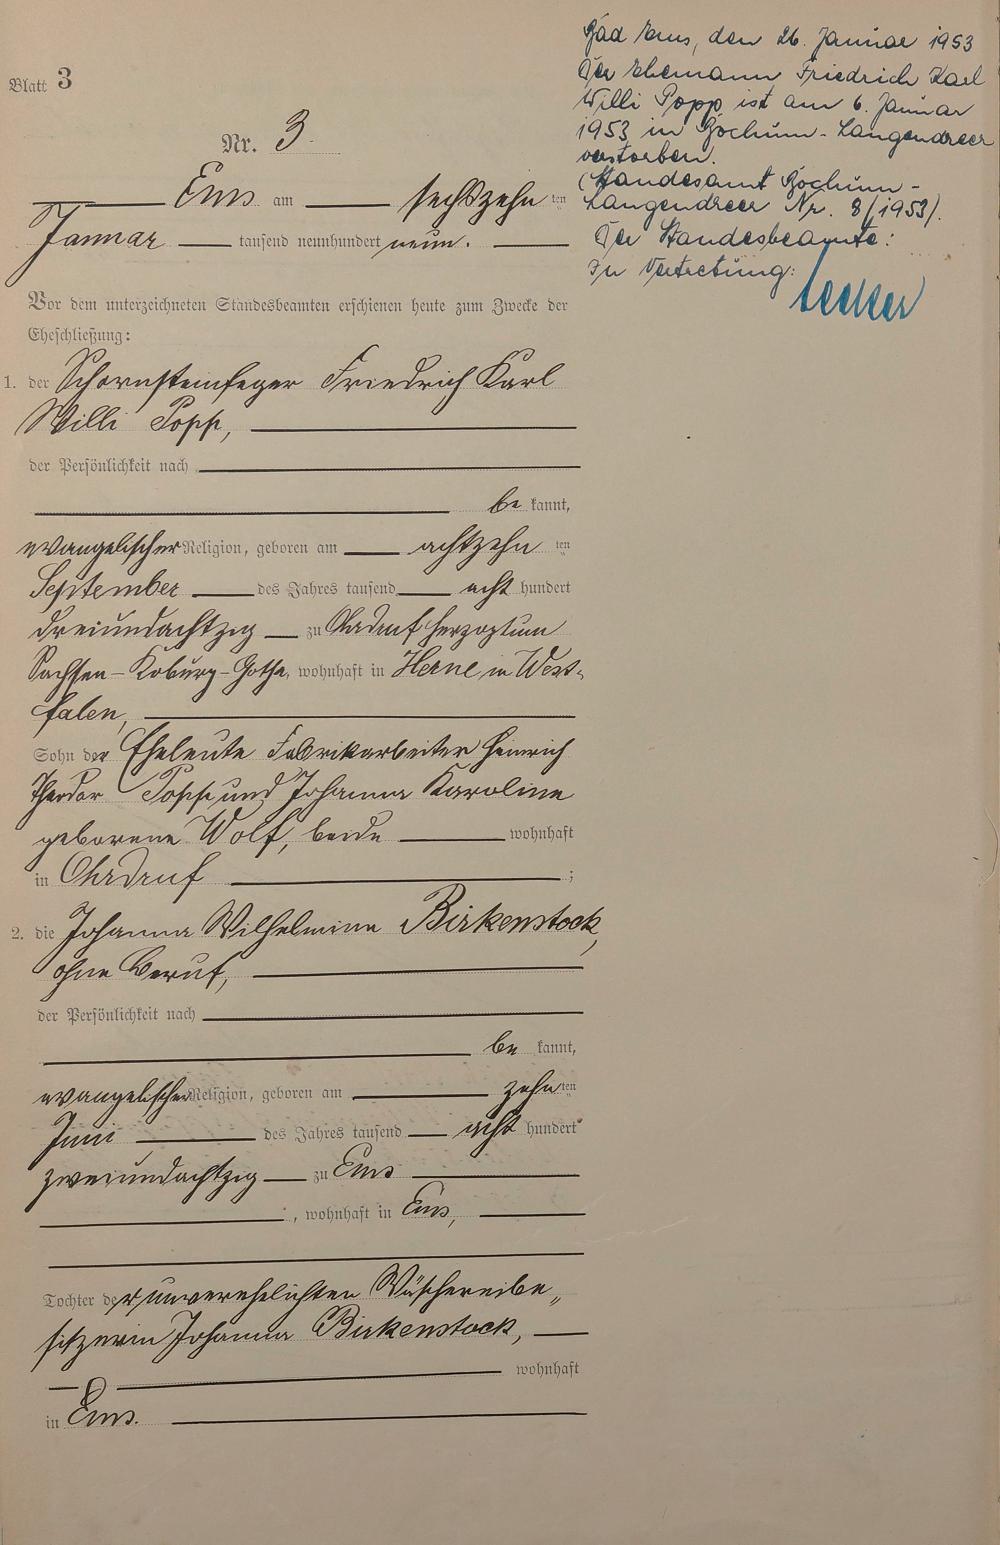 Blatt 3
Nr. 3.
Ems am sechszehnten
Januar tausend neunhundert neun.
Vor dem unterzeichneten Standesbeamten erschienen heute zum Zwecke der
Eheschließung:
1. der Schornsteinfeger Friedrich Karl
Willi Popp,
der Persönlichkeit nach
be kannt,
evangelischer Religion, geboren am achtzehn ten
September des Jahres tausend acht hundert
dreiundachtzig zu Ohrdruf Herzogtum
Sachsen-Koburg-Gotha, wohnhaft in Herne in West-
falen,
Sohn der Eheleute Fabrikarbeiter Heinrich
Theodor Popp und Johanna Karoline
geborene Wolf, beide wohnhaft
in Ohrdruf ;
2. die Johanna Wilhelmine Birkenstock,
ohne Beruf,
der Persönlichkeit nach
be kannt,
evangelischer Religion, geboren am zehnten
Juni des Jahres tausend acht hundert
zweiundachtzig zu Ems
, wohnhaft in Ems,
Tochter der unverehelichten Wäschereibe„
sitzerin Johanna Birkenstock,
wohnhaft
in Ems.
Bad Ems, den 26. Januar 1953
Der Ehemann Friedrich Karl
Willi Popp ist am 6. Januar
1953 in Bochum-Langendreer
verstorben.
(Standesamt Bochum-
Langendreer Nr. 8/1953).
Der Standesbeamte:
In Vertretung: